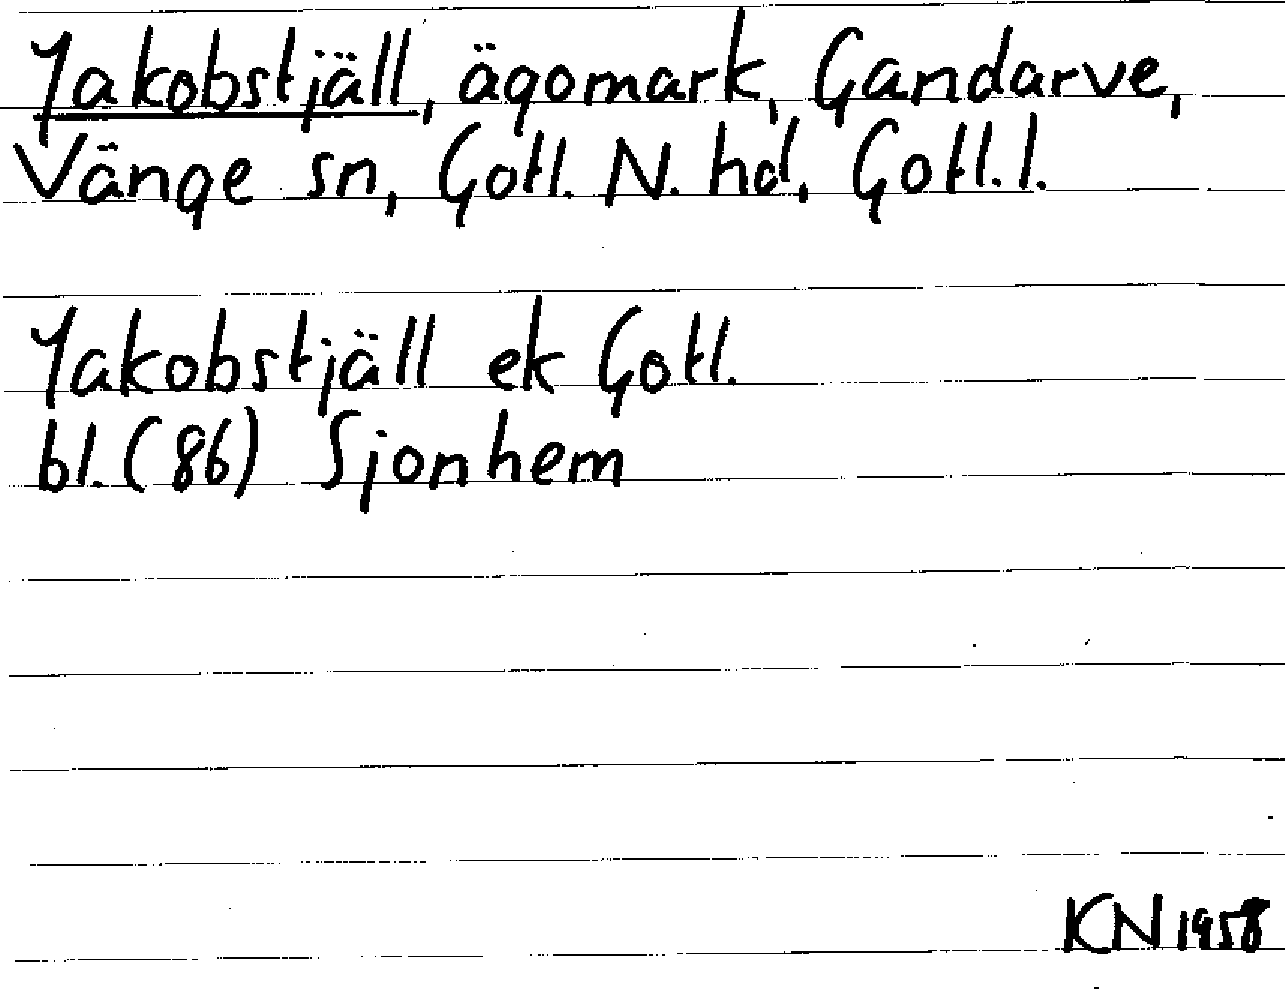 Jakobstjäll, ägomark, Gandarve,
Vänge sn, Gotl. N. hd, Gotl. l.
Jakobstjäll ek Gotl.
bl. (86) Sjonhem
KN 1958